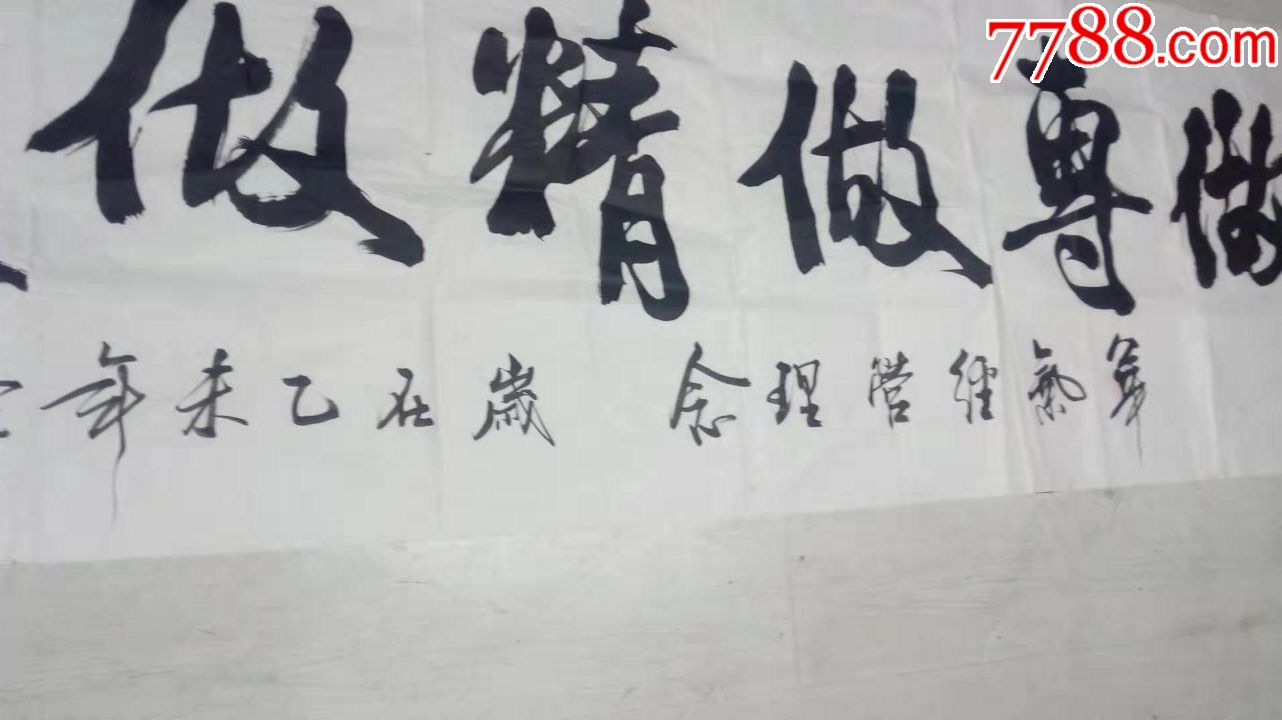 7788.com
做專做精做
氣經营理念 歲在乙未年